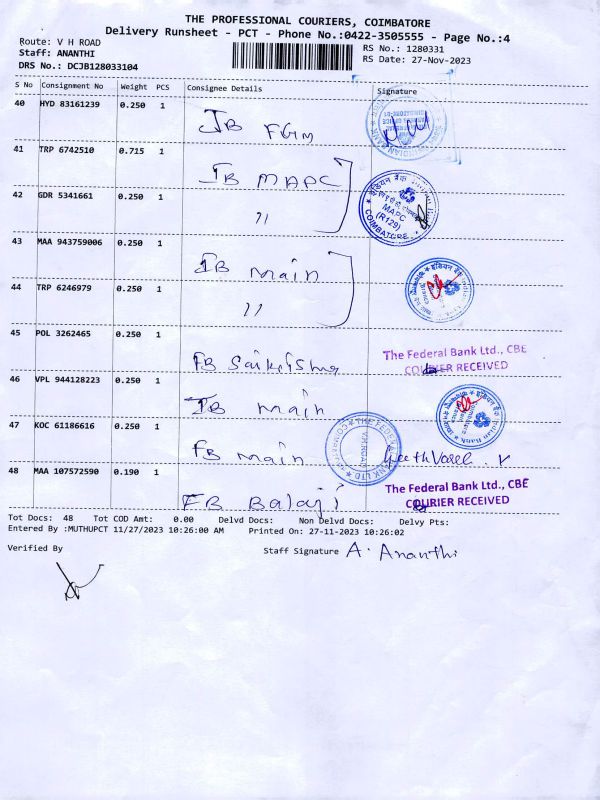 THE PROFESSIONAL COURIERS, COIMBATORE
Delivery Runsheet - PCT - Phone No.:0422-3505555 - Page No.:4
Route: V H ROAD
Staff: ANANTHI
DRS No.: DCJB128033104
RS No.: 1280331
RS Date: 27-Nov-2023
S No Consignment No Weight PCS Consignee Details Signature
40 HYD 83161239 0.250 1 IB
41 TRP 6742510 0.715 1 IB MAPC
42 GDR 5341661 0.250 1 "
इंडियन बैंक
MAPC
(R129)
COIMBATORE
43 MAA 943759006 0.250 1 IB main
44 TRP 6246979 0.250 1 "
45 POL 3262465 0.250 1 FB
The Federal Bank Ltd., CBE
COURIER RECEIVED
46 VPL 944128223 0.250 1 IB main
47 KOC 61186616 0.250 1 FB main
48 MAA 107572590 0.190 1 FB Balaji
The Federal Bank Ltd., CBE
COURIER RECEIVED
Tot Docs: 48 Tot COD Amt: 0.00 Delvd Docs: Non Delvd Docs: Delvy Pts:
Entered By :MUTHUPCT 11/27/2023 10:26:00 AM Printed On: 27-11-2023 10:26:02
Verified By
Staff Signature A. Ananthi